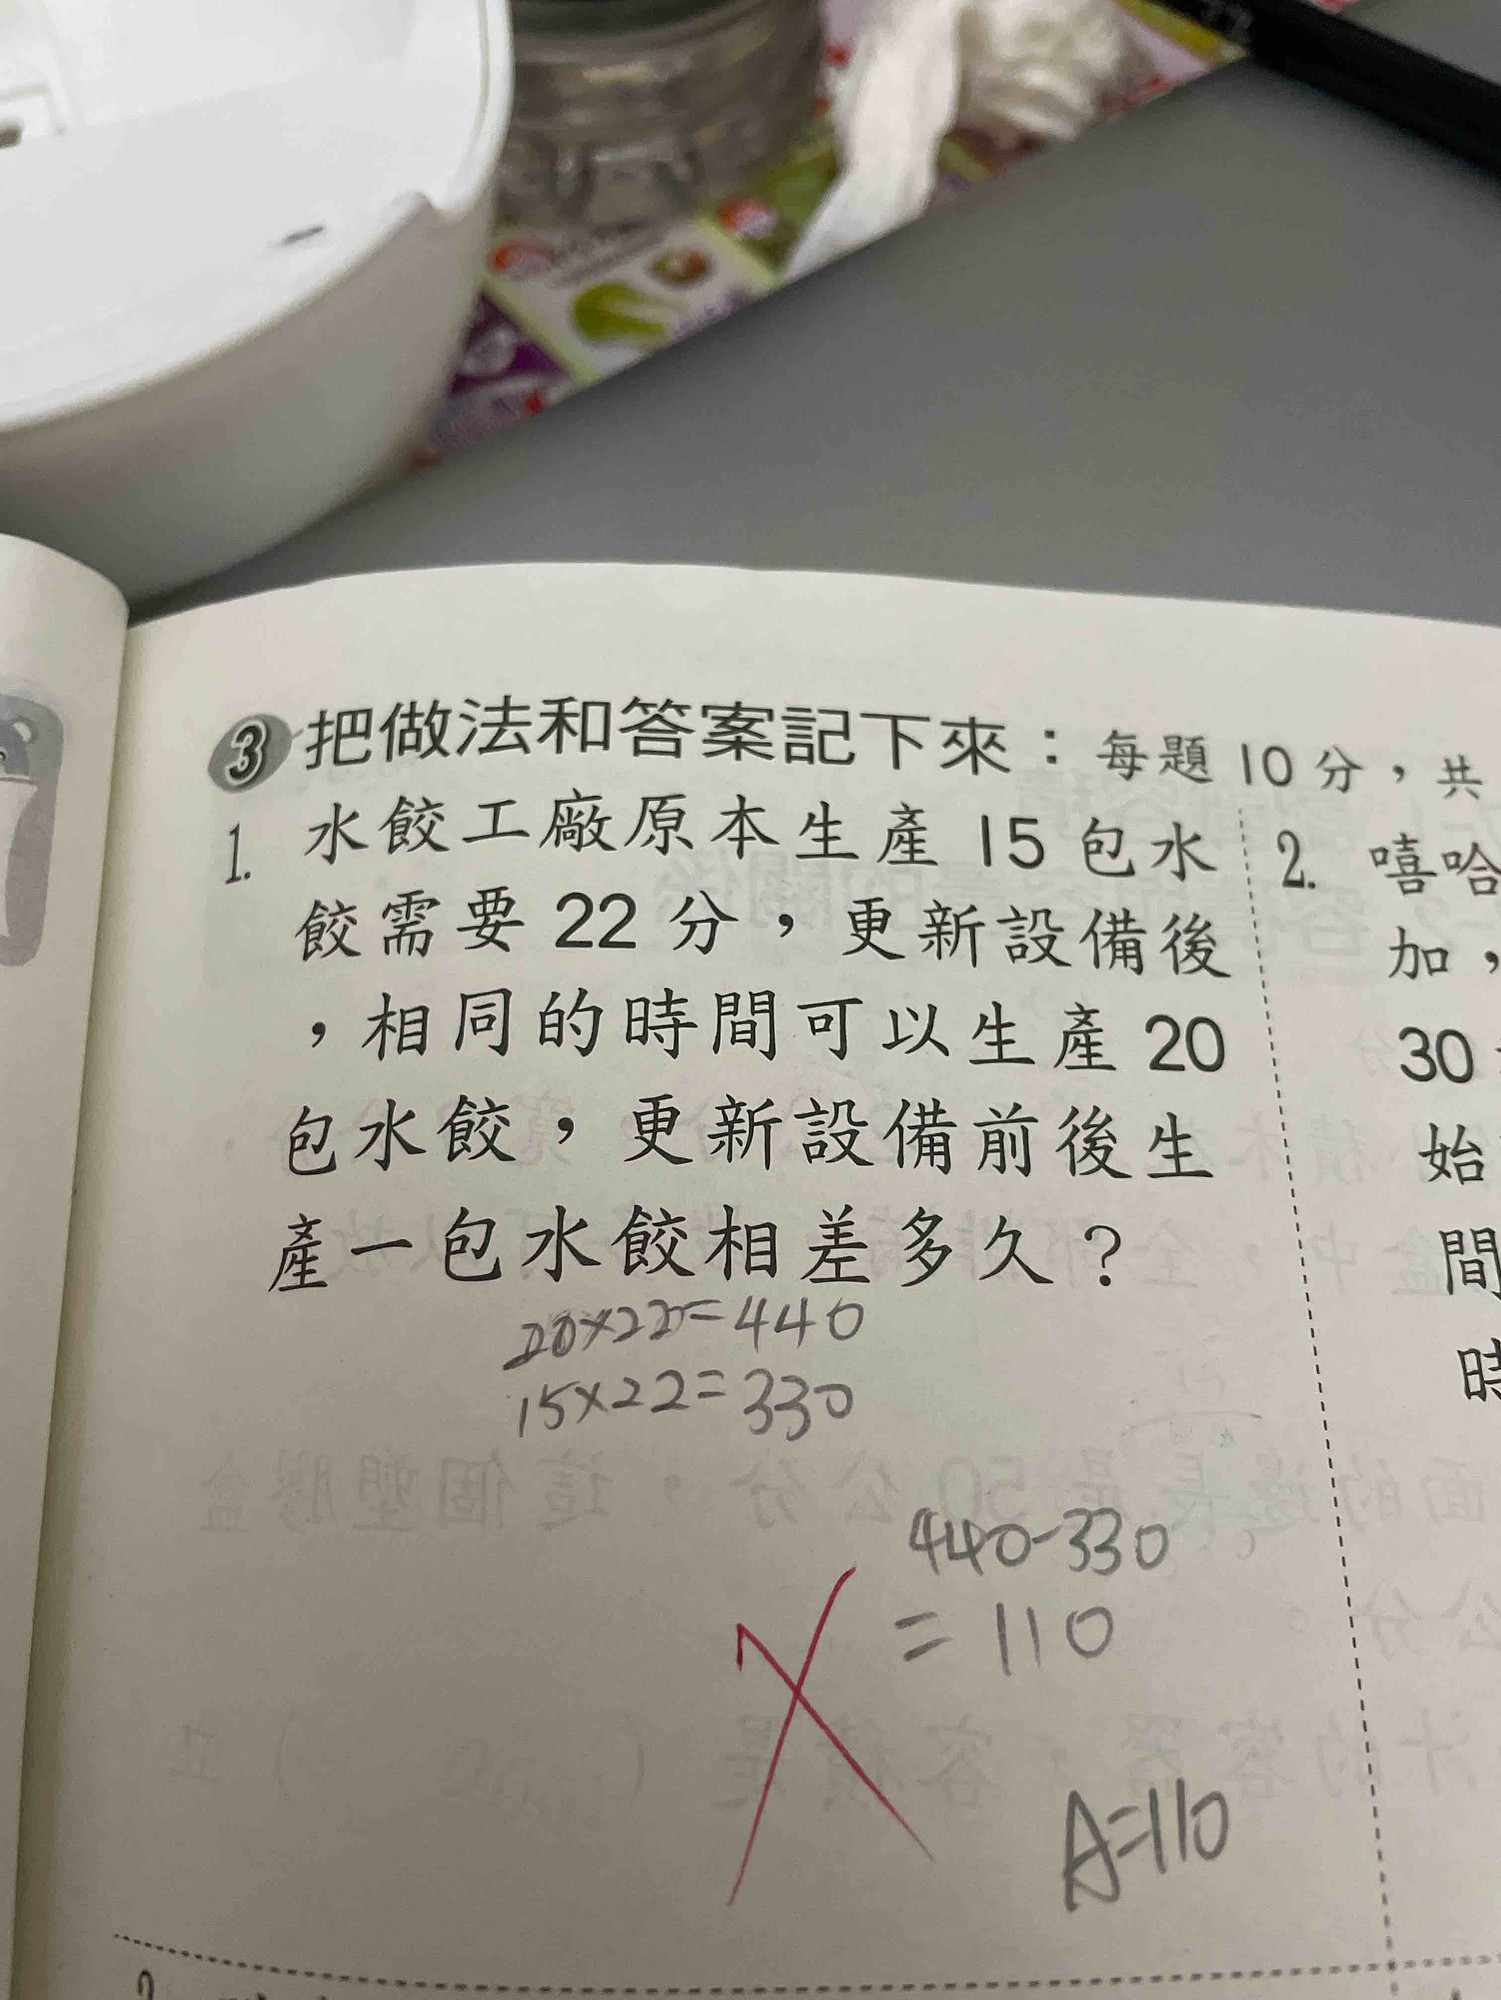 3 把做法和答案記下來：每題10分，共
1. 水餃工廠原本生產 15 包水
餃需要 22 分，更新設備後
，相同的時間可以生產 20
包水餃，更新設備前後生
產一包水餃相差多久？
20×22=440
15×22=330
440-330
=110
A=110
2. 嘻哈
加，
30
始
間
時